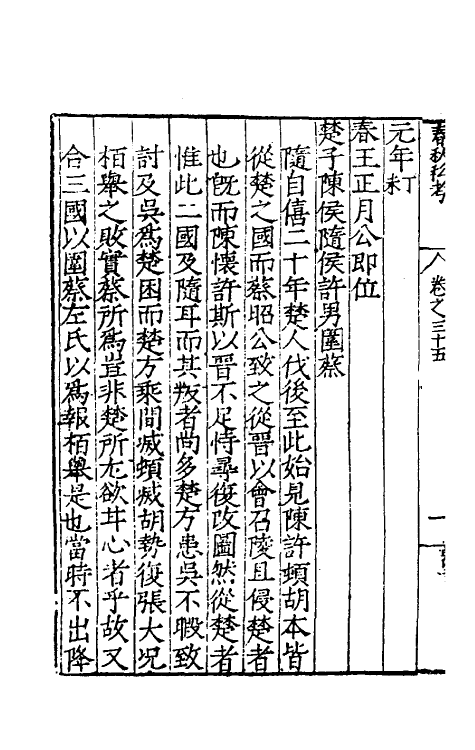 春秋私考
卷之三十五
一
元年未丁
春王正月公即位
楚子陳侯隨侯許男圍蔡
隨自僖二十年楚人伐後至此始見陳許頓胡本皆
從楚之國而蔡昭公致之從晉以會召陵且侵楚者
也旣而陳懷許斯以晉不足恃尋復改圖然從楚者
惟此二國及隨耳而其叛者尚多楚方患吳不暇致
討及吳爲楚困而楚方乘間滅頓滅胡勢復張大况
栢舉之敗實蔡所爲豈非楚所尤欲甘心者乎故又
合三國以圍蔡左氏以爲報栢舉是也當時不出降